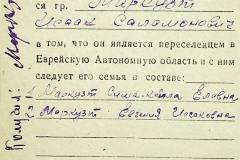 ся гр. Маркузт
Исаак Саламонович
в том, что он является переселенцем в
Еврейскую Автономную область и с ним
следует его семья в составе:
1 Маркузт Сима-Кейла Еловна
2 Маркузт Евгения Исаковна